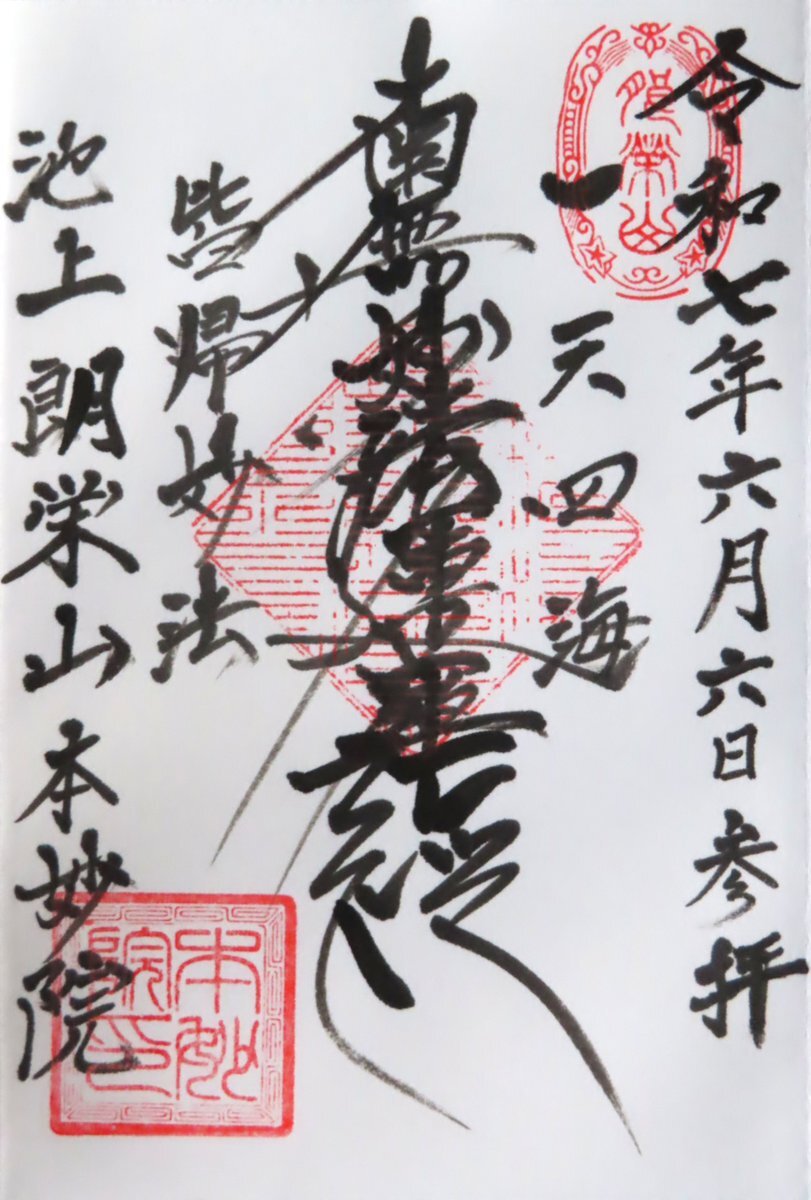 令和七年六月六日参拝
一天四海
南無妙法蓮華経
皆帰妙法
池上朗栄山本妙院
朗栄山
本妙院印